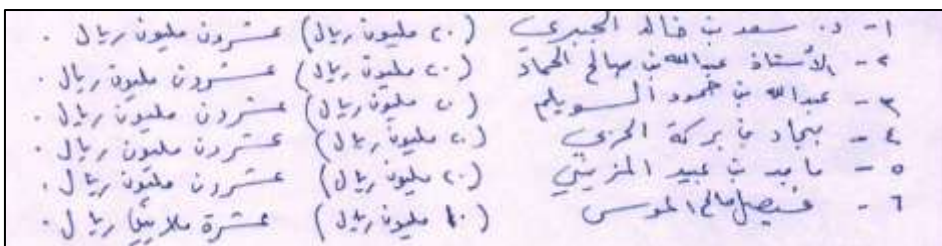 ١- د. سعد بن خالد الجبري (٢٠ مليون ريال) عشرون مليون ريال .
٢- الأستاذ عبدالله بن صالح الحماد (٢٠ مليون ريال) عشرون مليون ريال .
٣- عبدالله بن حمود السويلم (٢٠ مليون ريال) عشرون مليون ريال .
٤- بجاد بن بركة الحربي (٢٠ مليون ريال) عشرون مليون ريال .
٥- ماجد بن عبيد المزيني (٢٠ مليون ريال) عشرون مليون ريال .
٦- صالح (١٠ مليون ريال) عشرة ملايين ريال .